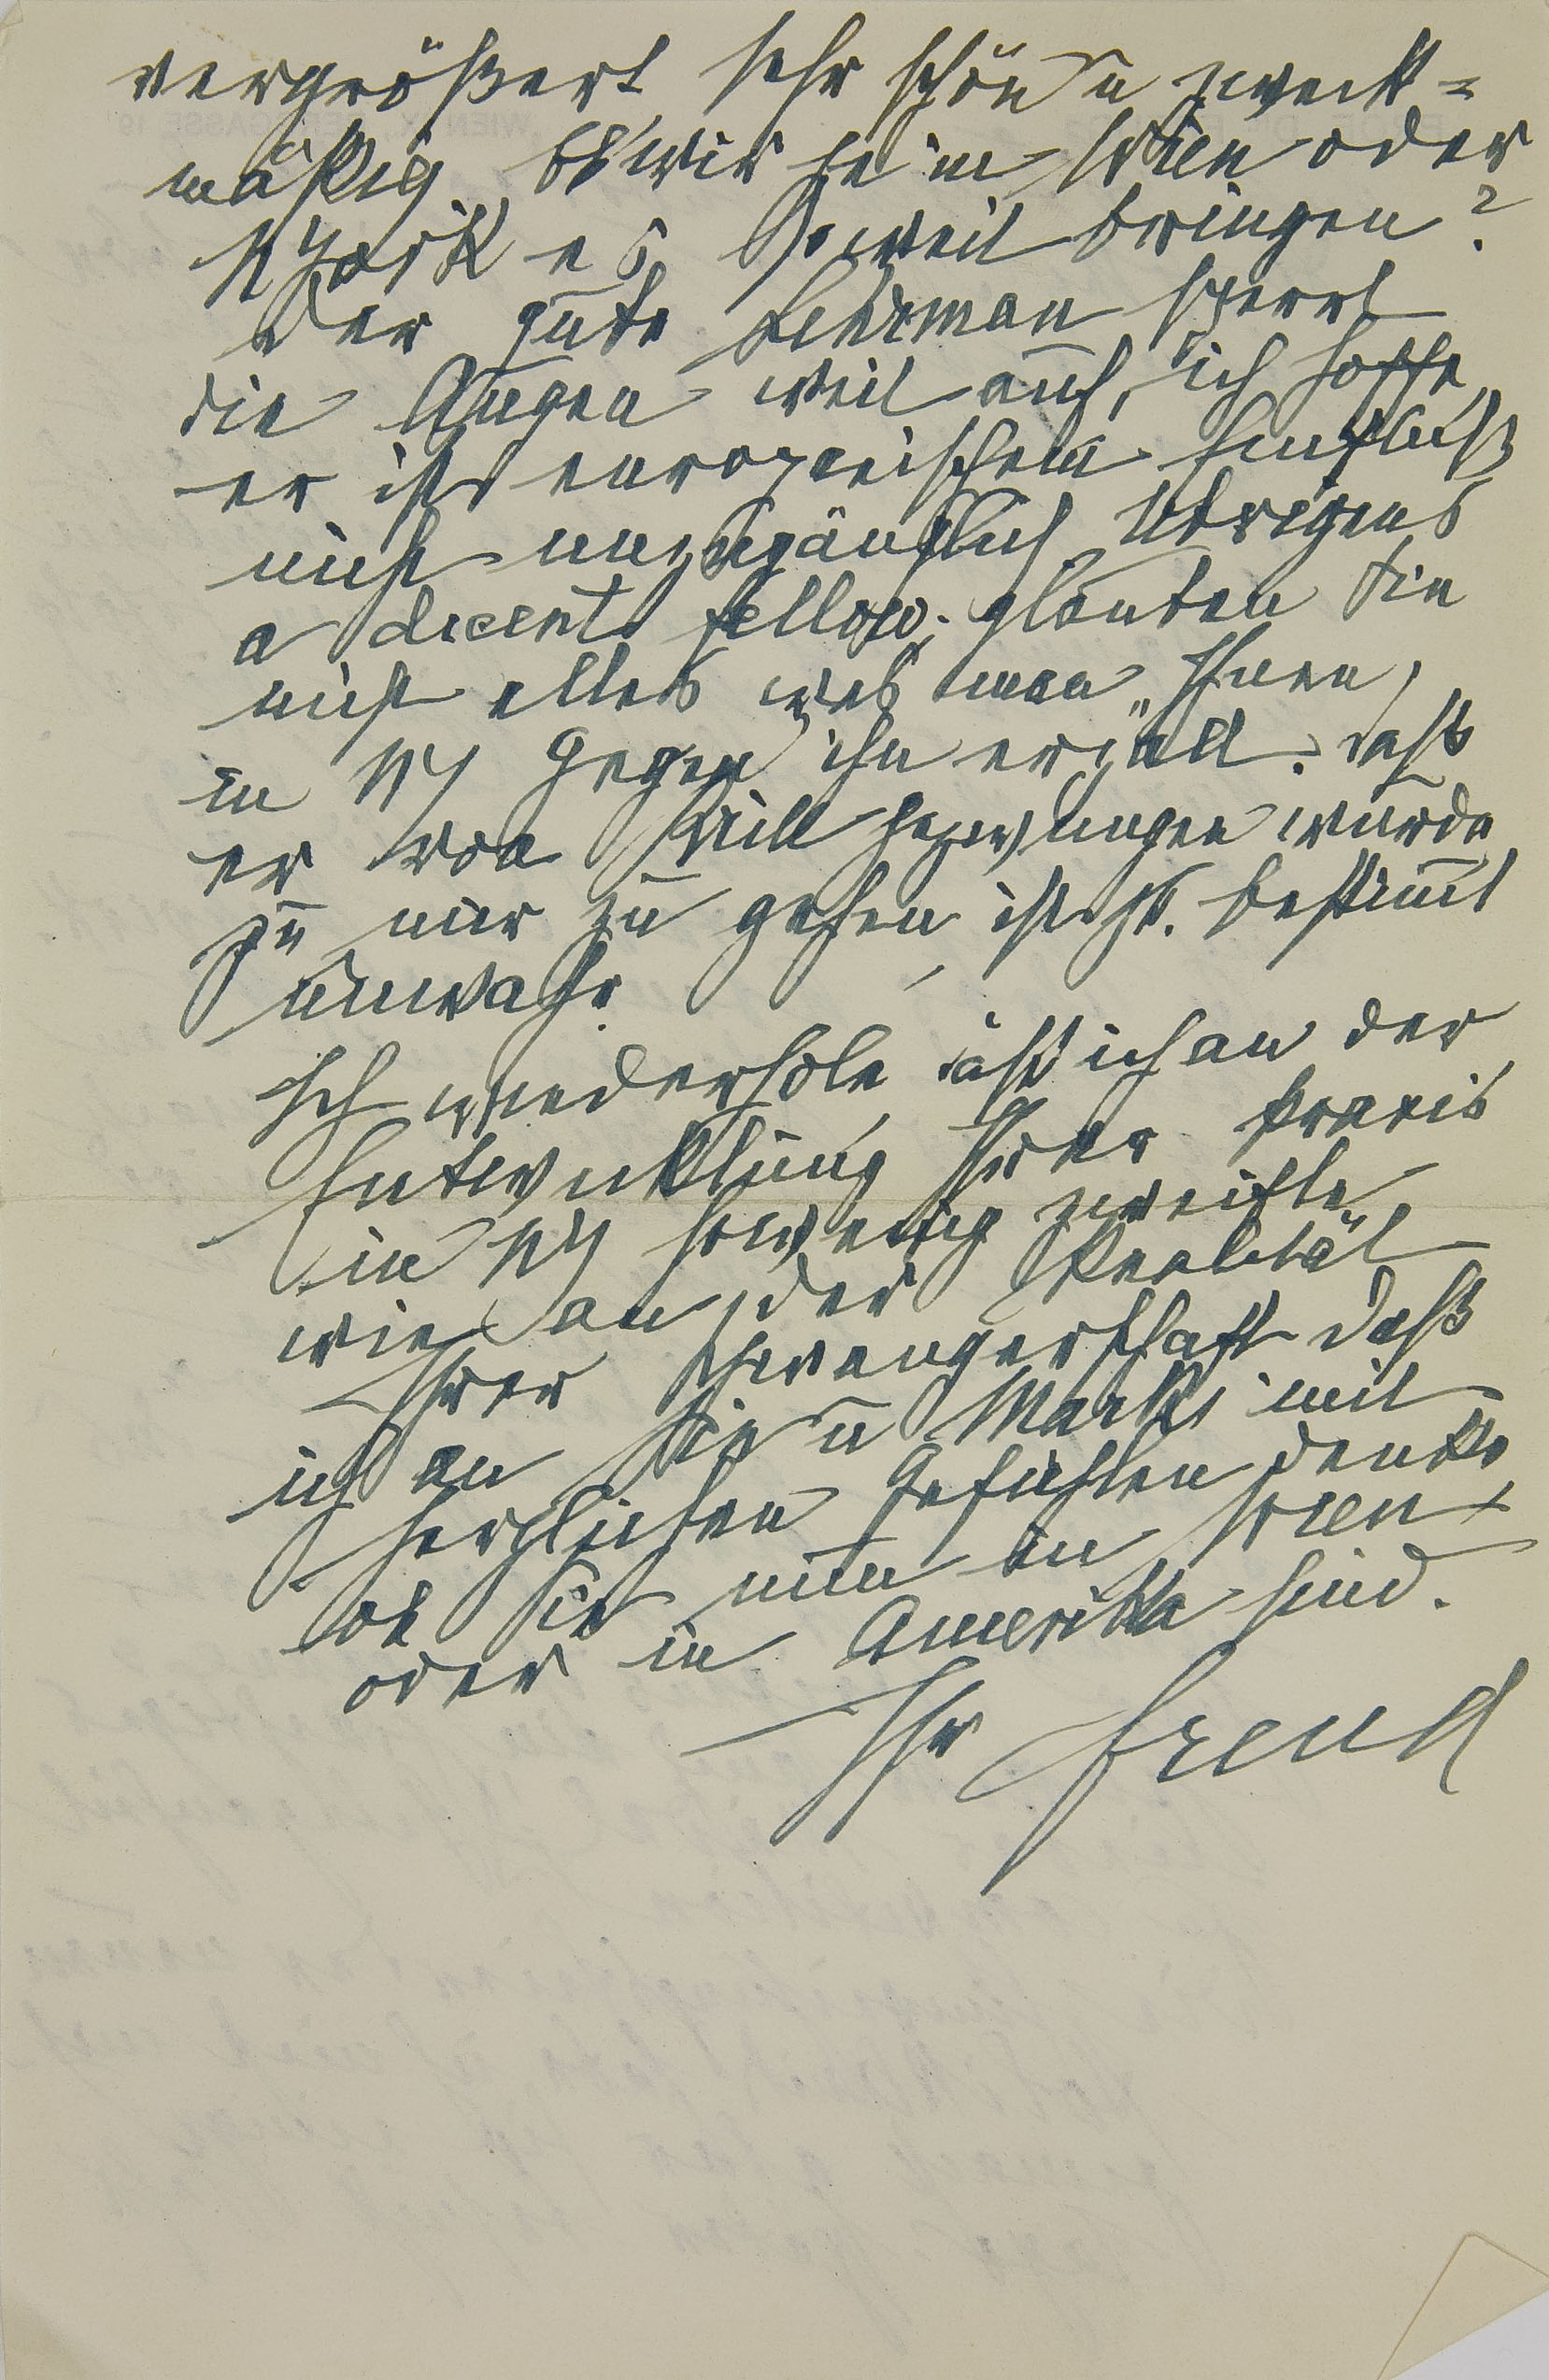 vergrößert sehr schön u zweck=
mäßig. Ob wir je in Wien oder
NYork es so weit bringen?
Der gute Lehrman sperrt
die Augen weit auf, ich hoffe,
er ist europaeischem Einfluß
nicht unzugänglich. Übrigens
a decent fellow; glauben Sie
nicht alles was man Ihnen
in NY gegen ihn erzält. Daß
er von Brill gezwungen wurde
zu mir zu gehen, ist bestimt
unwahr.
Ich wiederhole, daß ich an der
Entwicklung Ihrer Praxis
in NY sowenig zweifle
wie an der Realität
Ihrer Schwangerschaft daß
ich an Sie u Mark mit
herzlichen Gefühlen denke
ob Sie nun in Wien
oder in Amerika sind.
Ihr Freud